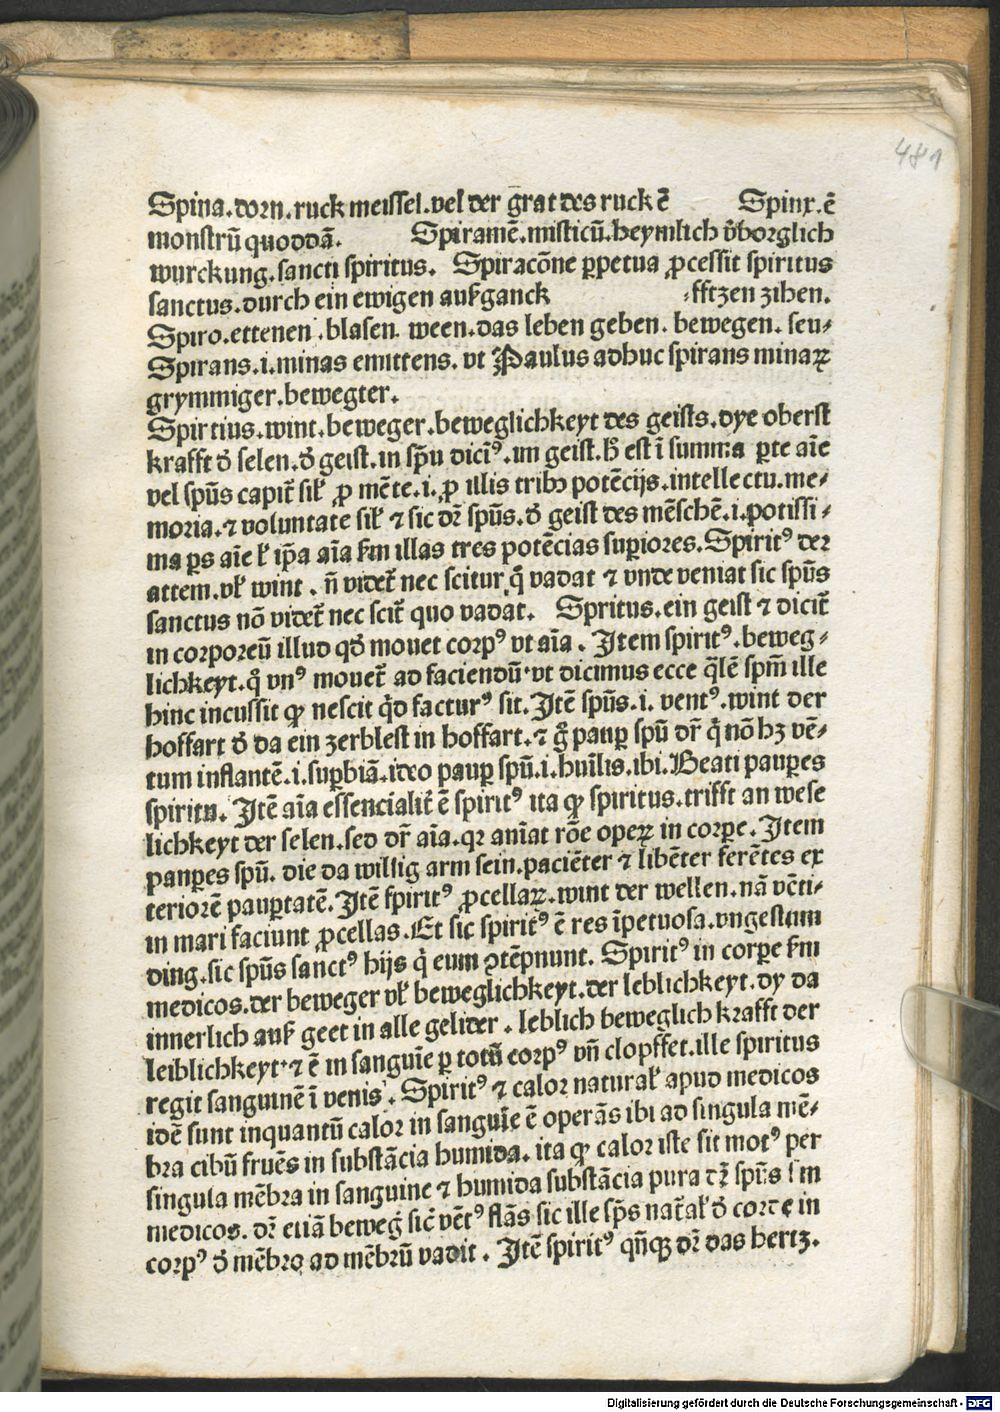 481
Spina.dorn.ruck meissel.vel der grat des ruck ē Spinx.ē
monstrū quoddā. Spiramē.misticū.heymlich v̄borglich
wurckung.sancti spiritus. Spiracōne ꝑpetua ꝓcessit spiritus
sanctus.durch ein ewigen aufganck ſftzen zihen.
Spiro.ettenen.blasen. ween.das leben geben. bewegen. seu-
Spirans.i.minas emittens. vt Paulus adhuc spirans minaꝝ
grymmiger.bewegter.
Spirtius.wint.beweger.beweglichkeyt des geists.dye oberst
krafft d̄ selen.d̄ geist.in spū diciꝰ.im geist.h̄ est ī summa ꝑte aīe
vel spūs capit̄ sil̄ ꝓ mēte.i.ꝓ illis tribꝫ potēcijs.intellectu.me-
moria.⁊ voluntate sil̄ ⁊ sic dr̄ spūs.d̄ geist des mēschē.i.potissi-
ma ꝑs aīe l̄ ip̄a aīa ẜm illas tres potēcias suꝑiores.Spiritꝰ der
attem.vl̄ wint . n̄ videt̄ nec scitur q̄ vadat ⁊ vnde veniat sic spūs
sanctus nō videt̄ nec scit̄ quo vadat. Spritus.ein geist ⁊ dicit̄
in corporeū illud qd̄ mouet corpꝰ vt aīa . Item spiritꝰ.beweg-
lichkeyt.q̄ vnꝰ mouet̄ ad faciendū.vt dicimus ecce q̄lē spm̄ ille
hinc incussit ꝙ nescit qd̄ facturꝰ sit.Itē spūs.i. ventꝰ.wint der
hoffart d̄ da ein zerblest in hoffart.⁊ g̊ pauꝑ spū dr̄ q̄ nō hꝫ vē-
tum inflantē.i.suꝑbiā.ideo pauꝑ spū.i.hūilis.ibi.Beati pauꝑes
spiritu. Itē aīa essencialit̄ ē spiritꝰ ita ꝙ spiritus.trifft an wese
lichkeyt der selen.sed dr̄ aīa.qꝛ anīat rōe opeꝝ in corꝑe.Item
pauꝑes spū. die da willig arm sein.paciēter ⁊ libēter ferētes ex
teriorē pauꝑtatē.Itē spiritꝰ ꝓcellaꝝ.wint der wellen.nā vēti-
in mari faciunt ꝓcellas.Et sic spiritꝰ ē res īpetuosa.vngestum
ding.sic spūs sanctꝰ hijs q̄ eum ꝯtēpnunt. Spiritꝰ in corꝑe ẜm
medicos.der beweger vl̄ beweglichkeyt.der leblichkeyt.dy da
innerlich auf geet in alle gelider . leblich beweglich krafft der
leiblichkeyt.⁊ ē in sanguīe ꝑ totū corpꝰ vn̄ clopffet.ille spiritus
regit sanguinē ī venis . Spiritꝰ ⁊ calor natural̄ apud medicos
idē sunt inquantū calor in sanguīe ē operās ibi ad singula mē-
bra cibū fruēs in substācia humida. ita ꝙ calor iste sit motꝰ per
singula mēbra in sanguine ⁊ humida substācia pura dr̄ spūs ẜm
medicos. dr̄ etiā beweg̓ sic̄ vētꝰ flās sic ille sp̄s nat̄al̄ d̄ corde in
corpꝰ d̄ mēbro ad mēbrū vadit . Itē spiritꝰ qn̄qꝫ dr̄ das hertz.
Digitalisierung gefördert durch die Deutsche Forschungsgemeinschaft - DFG